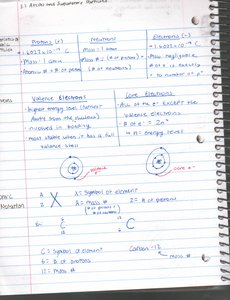 1.1 Atoms and Subatomic Particles
Protons (+)
Neutrons
Electrons (-)
+1.6022×10⁻¹⁹ C
Mass: 1 amu
-1.6022×10⁻¹⁹ C
Mass: 1 amu
Mass negligible
Atomic # = # of protons
# of neutrons
# of e⁻ is
to number of p⁺
Valence Electrons
Core Electrons
highest energy level (furthest
All of the e⁻ except the
away from the nucleus)
valence electrons
involved in bonding
# of e⁻ = 2n²
most stable when it has a full
n = energy levels
valence shell
valence e⁻
core e⁻
Notation
A
Z
X
X = symbol of element
A = mass #
(# of protons +
# of neutrons)
Z = # of protons
Ex:
12
6
C
C = symbol of element
Carbon-12
6 = # of protons
mass #
12 = mass #